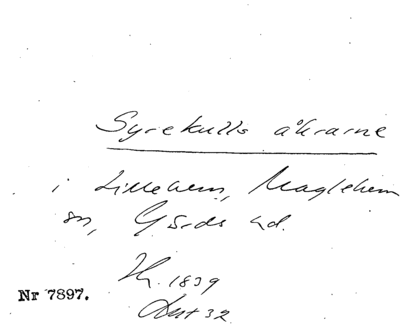 Syrekulls åkrarne
i Lillehem, Maglehem
sn, Gärds hd.
1839
Nr 7897.
32